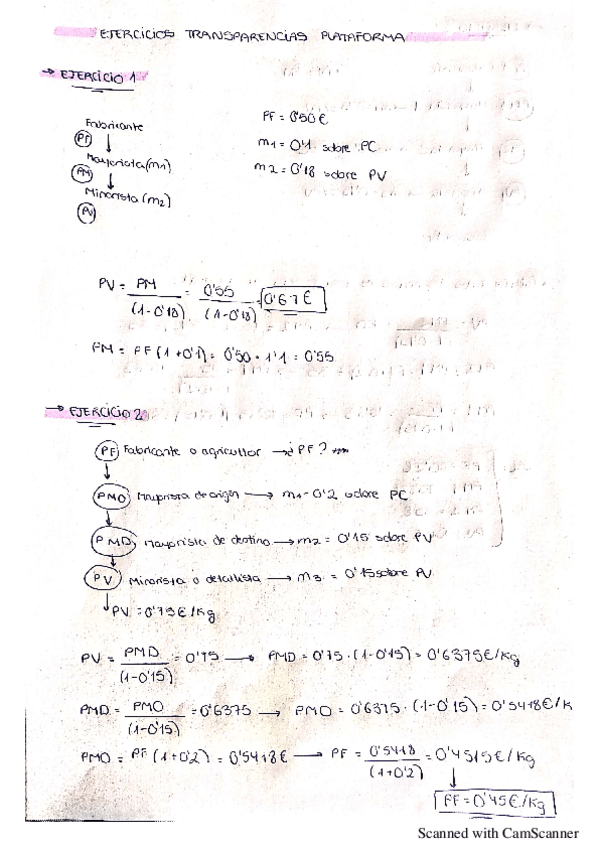 EJERCICIOS TRANSPARENCIAS PLATAFORMA
→ EJERCICIO 1
Fabricante
PF
Mayorista (m1)
PM
Minorista (m2)
PV
PF = 0'50 €
m1 = 0'1 sobre PC
m2 = 0'18 sobre PV
PV = PM / (1-0'18) = 0'55 / (1-0'18) = 0'67 €
PM = PF (1+0'1) = 0'50 · 1'1 = 0'55
→ EJERCICIO 2
PF Fabricante o agricultor → ¿PF?
PMO Mayorista de origen → m1 = 0'2 sobre PC
PMD Mayorista de destino → m2 = 0'15 sobre PV
PV Minorista o detallista → m3 = 0'15 sobre PV
↓ PV = 0'75 €/Kg
PV = PMD / (1-0'15) = 0'75 → PMD = 0'75 · (1-0'15) = 0'6375 €/Kg
PMD = PMO / (1-0'15) = 0'6375 → PMO = 0'6375 · (1-0'15) = 0'5418 €/K
PMO = PF (1+0'2) = 0'5418 € → PF = 0'5418 / (1+0'2) = 0'4515 €/Kg
PF = 0'45 €/Kg
Scanned with CamScanner